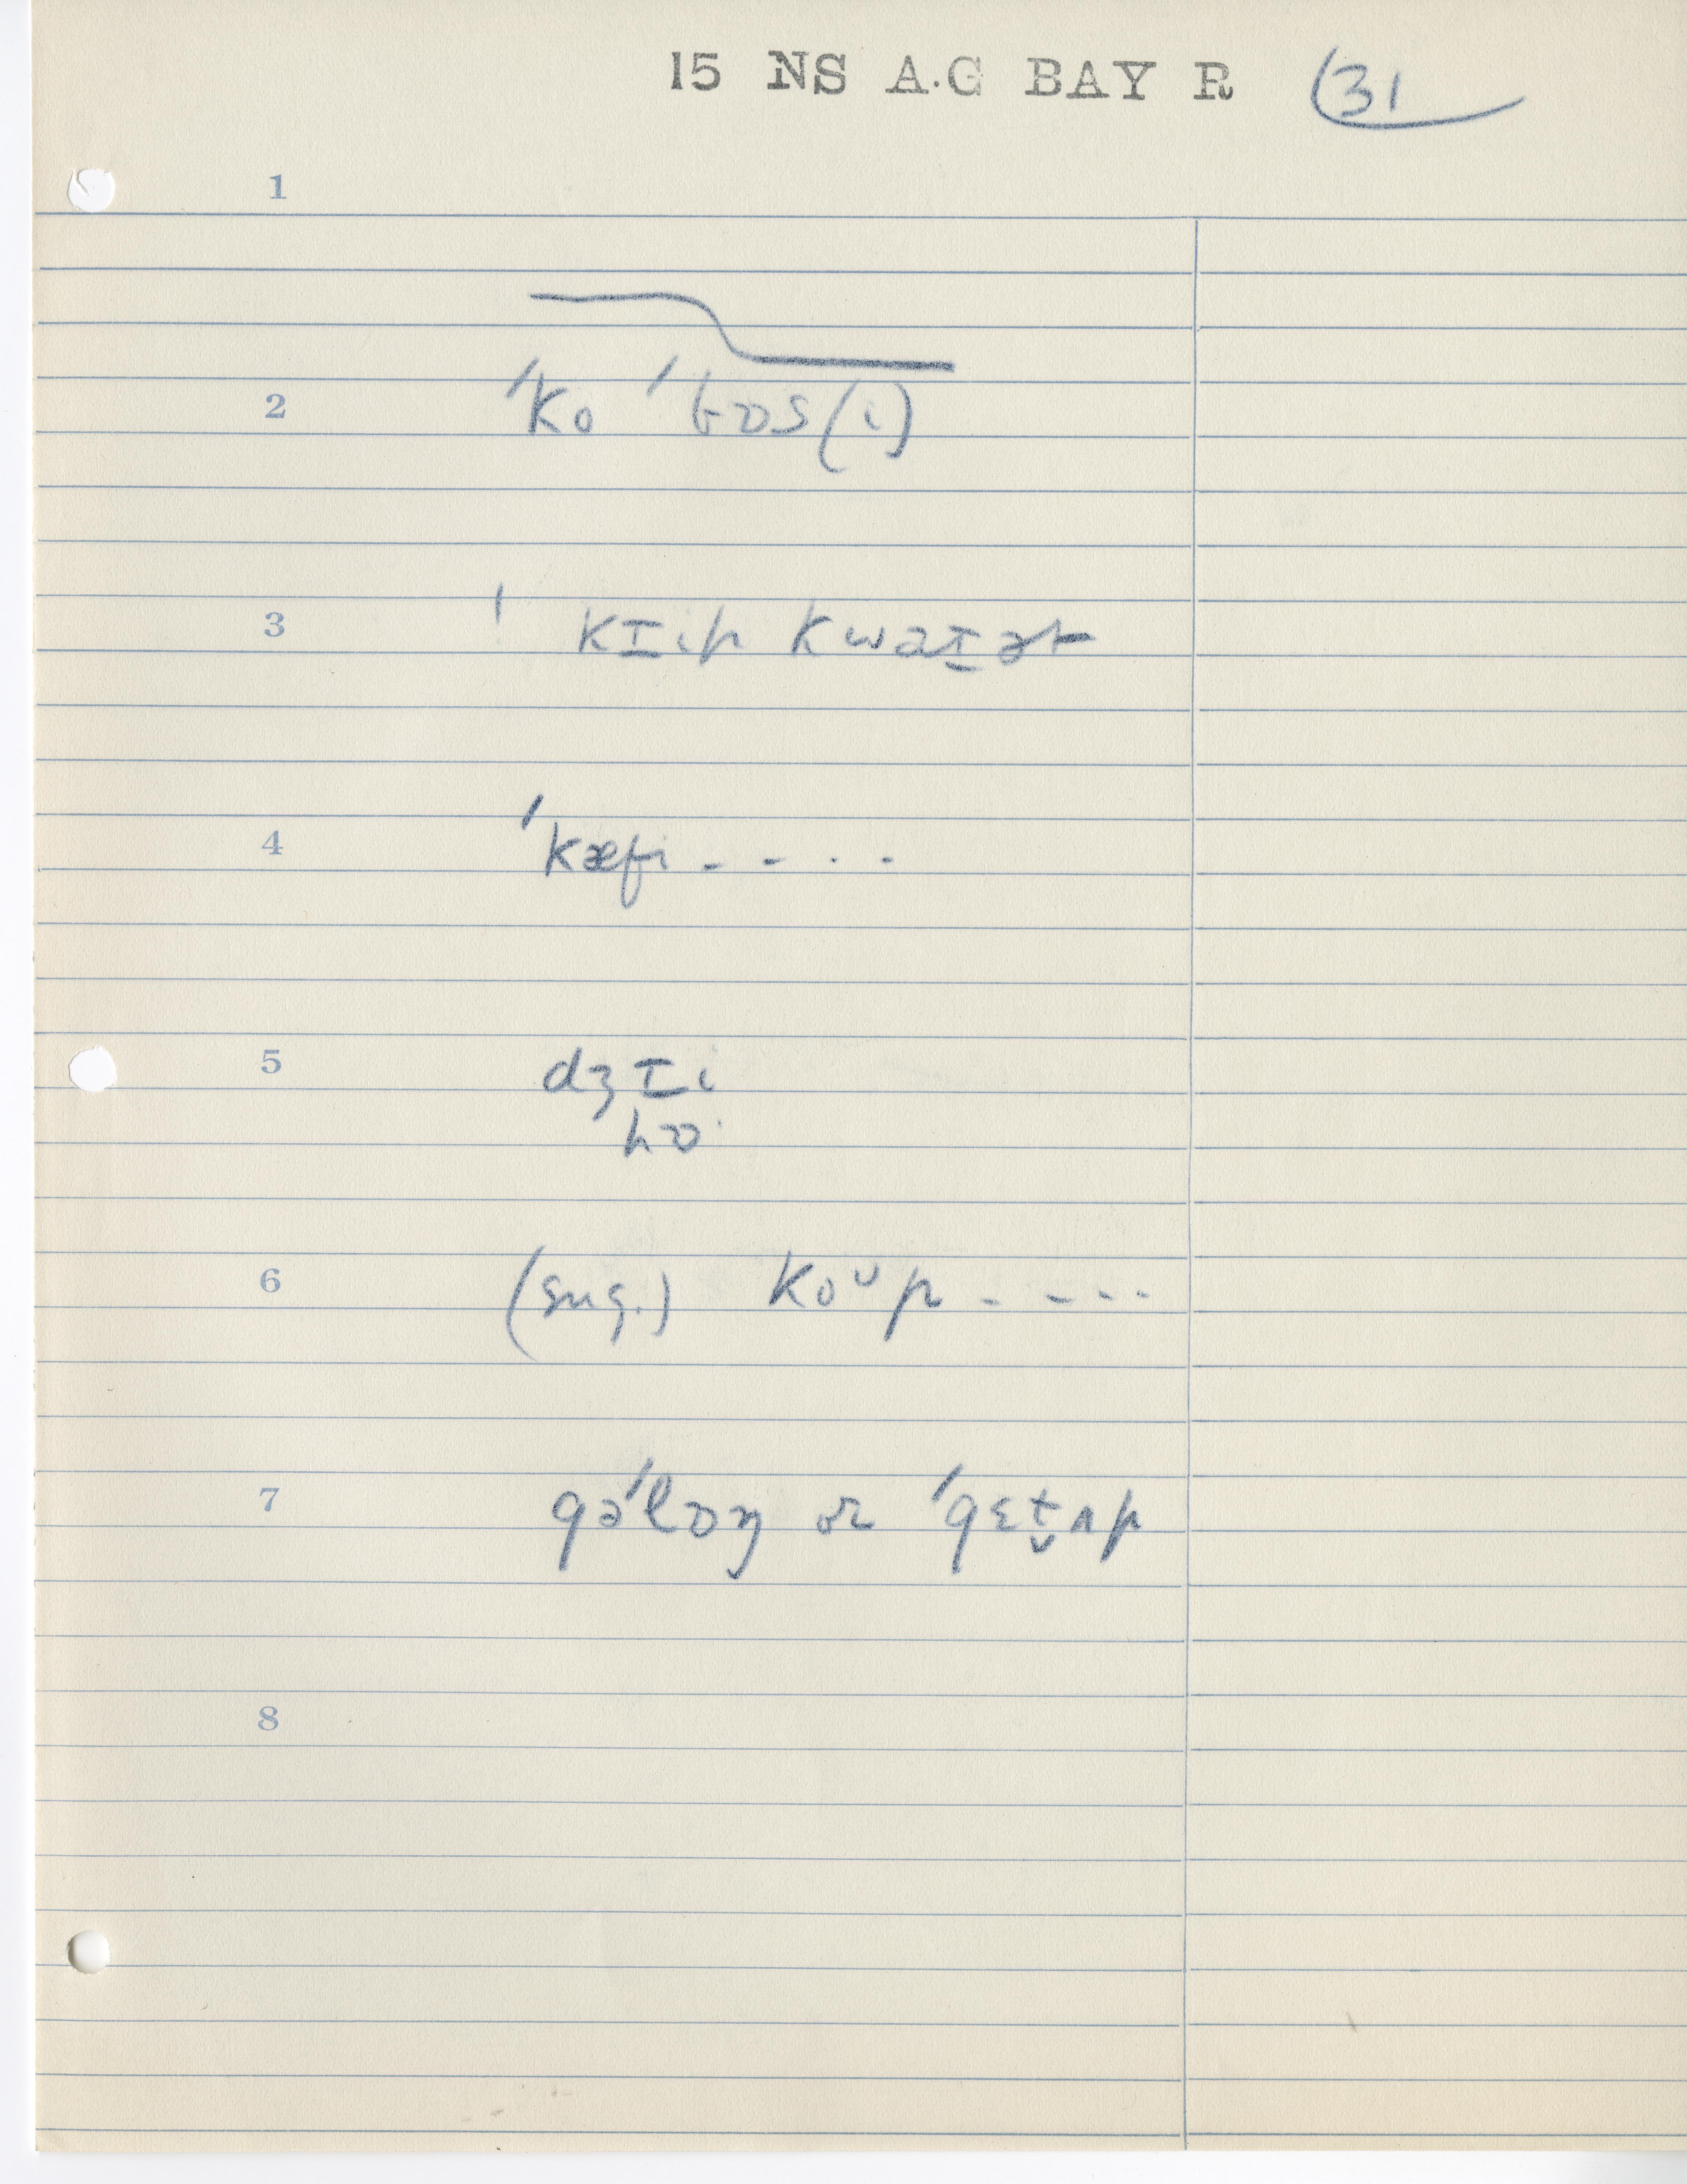 15 NS A.G BAY R (31
1
2 ˈko ˈbɒs(i)
3 ˈ kɪip kwaɪət
4 ˈkæfi - - - -
5 dʒɪi
hɒ
6 (sug.) koᴜp - - - -
7 gəˈlɒŋ or ˈgɛt̬ʌp
8